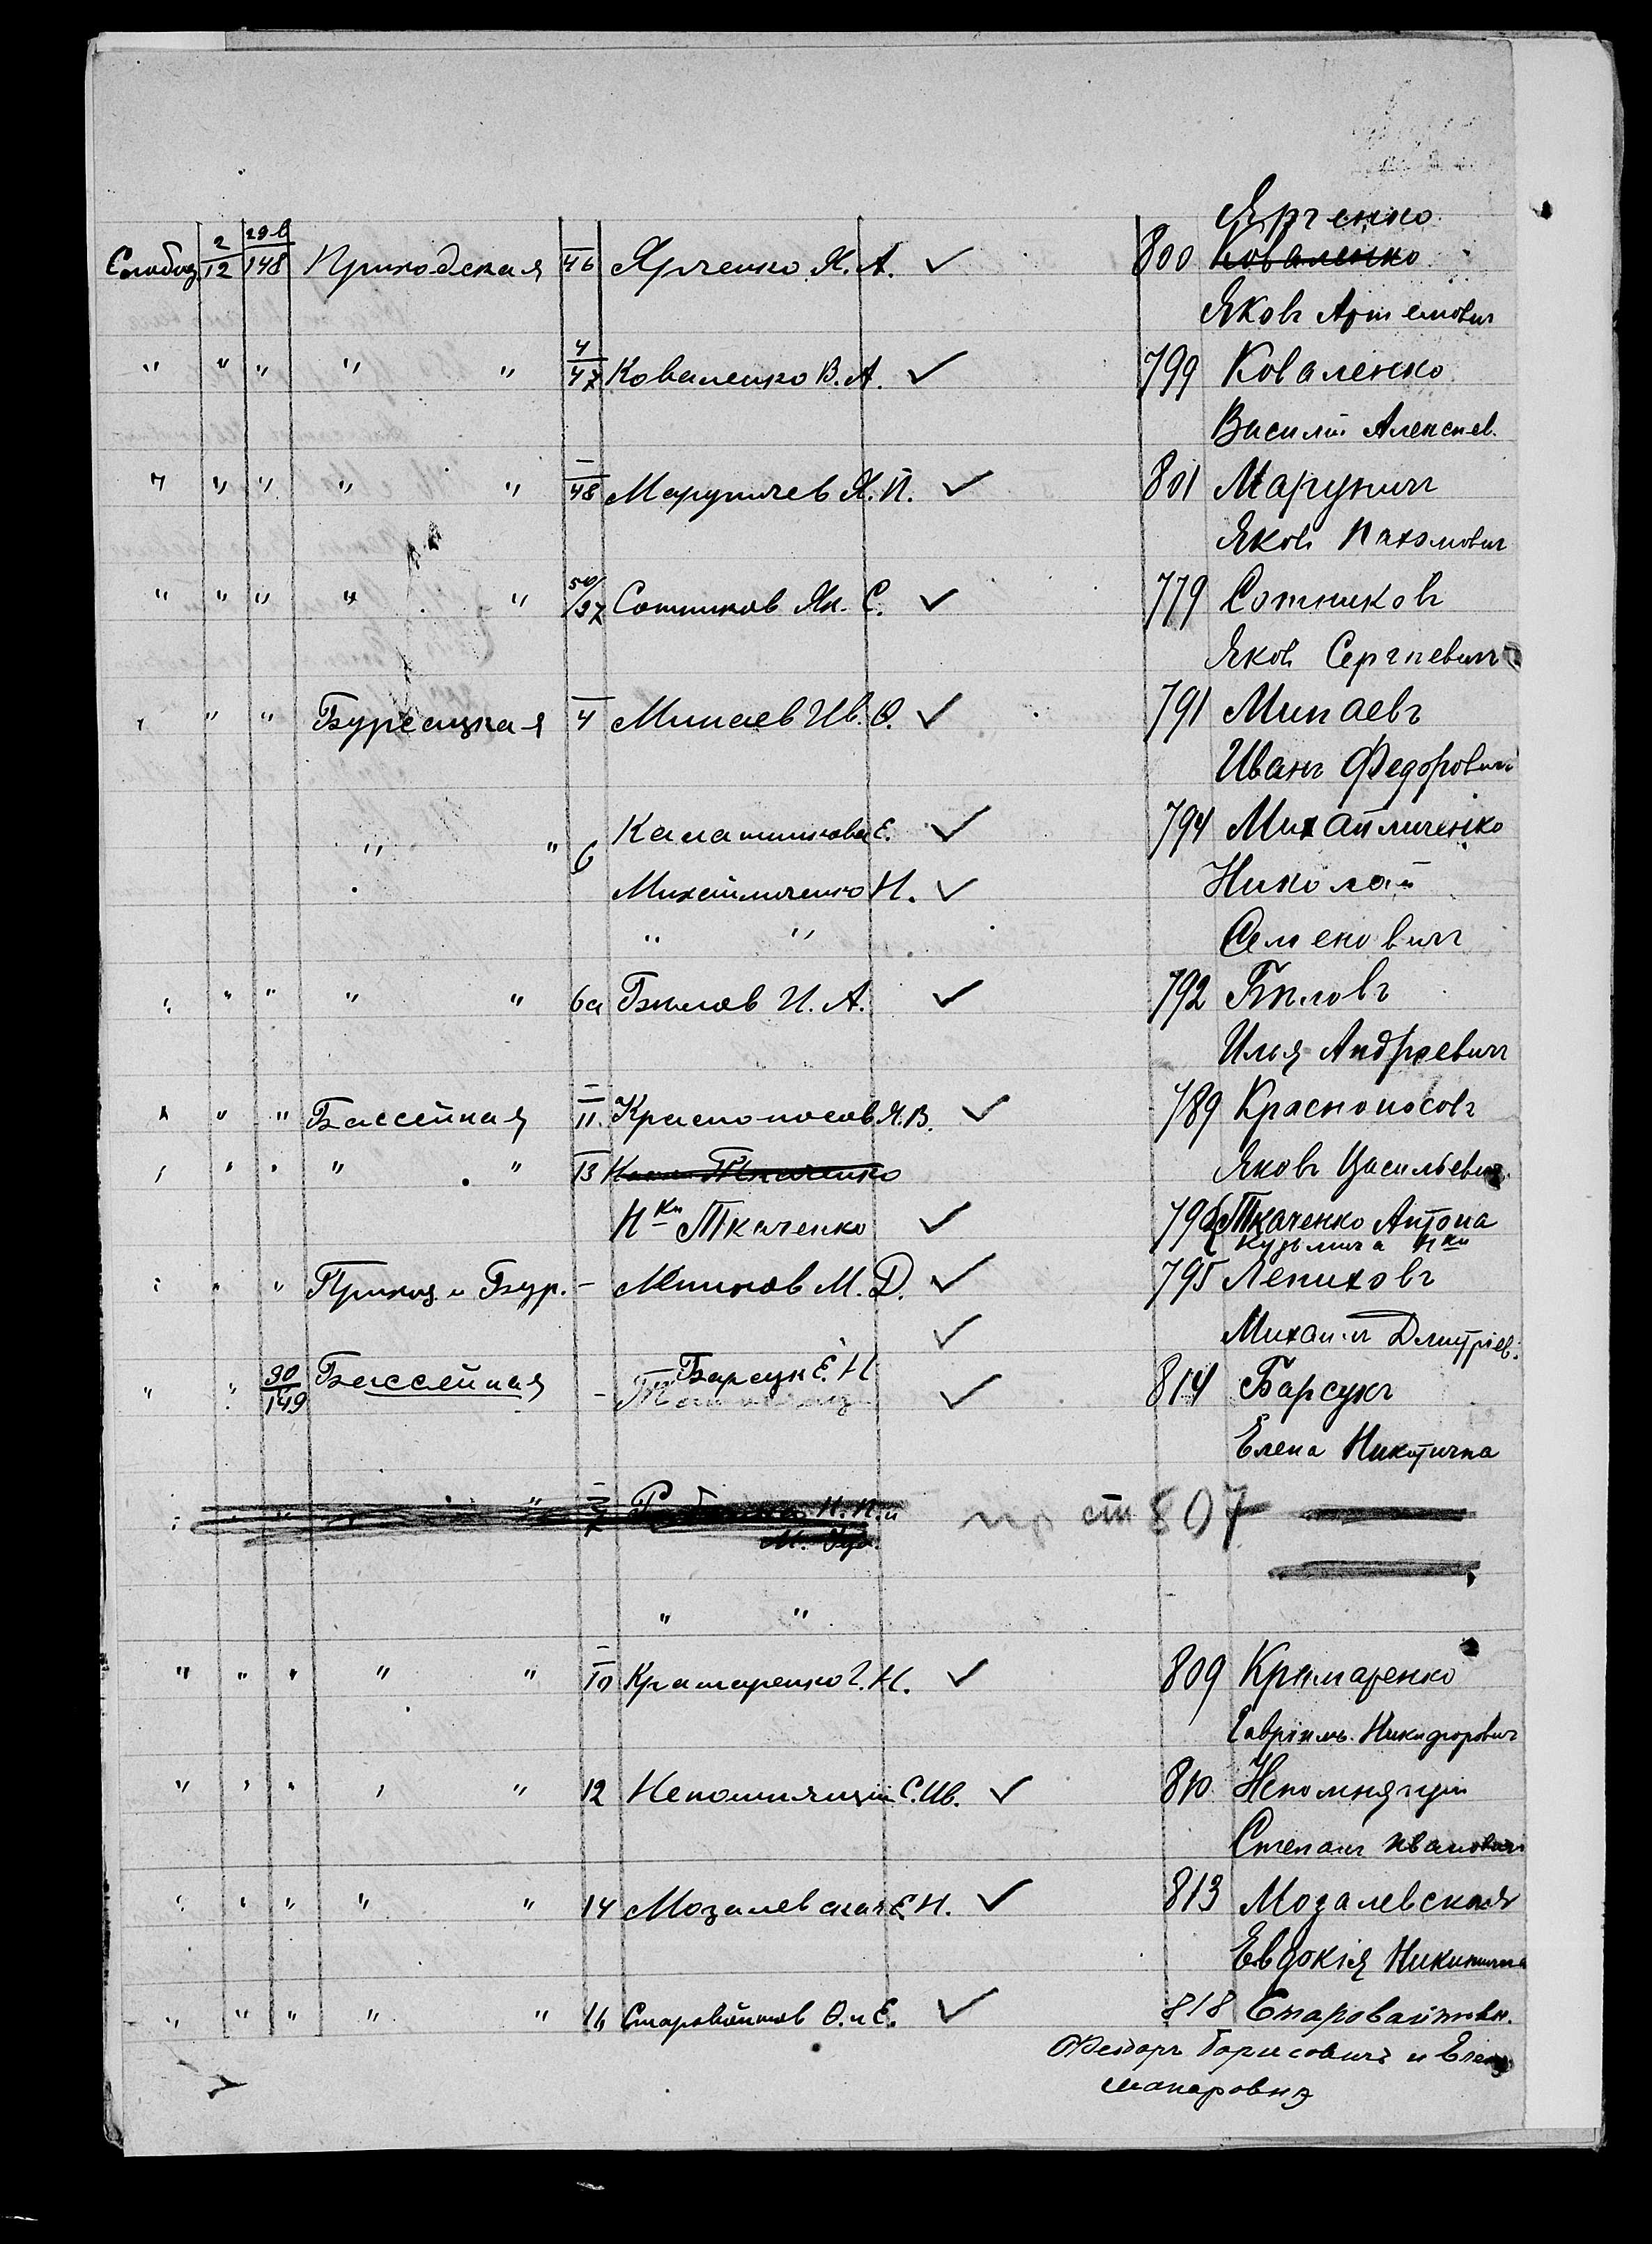 Ярченко
Слобод. 2/12 29-в/148 Приходская —/46 Ярченко Я. А. ✓ 800 Коваленко
Яковъ Артемович
" " " " " 4/47 Коваленко В. А. ✓ 799 Коваленко
Василій Алексеев.
" " " " " —/48 Марунчев Я. П. ✓ 801 Марунич
Яковъ Пахомович
" " " " " 50/37 Сотников Як. С. ✓ 779 Сотниковъ
Яковъ Сергеевич
" " " Бурсацкая —/4 Минаев Ив. Ѳ. ✓ 791 Минаевъ
Иванъ Федорович
" " 6 Калашникова Е. ✓ 794 Михайличенко
Михайличенко Н. ✓ Николай
" " Семеновичъ
" " " " " 6а Белов И. А. ✓ 792 Беловъ
Илья Андреевичъ
" " " Бассейная —/11 Красноносов Я. В. ✓ 789 Красноносовъ
" " " " " 13 Ткаченко Яковъ Васильевич
Н-ки Ткаченко ✓ 796 Ткаченко Антона
Кузьмича н-ки
" " " Приход. и Бур. — М. Д. ✓ 795 Лепиховъ
✓ Михаил Дмитріев.
Барсук Е. Н
" " 30/149 Бассейная — ✓ 814 Барсукъ
Елена Никитична
Н. П. и пр ст 807
" "
" " " " " —/10 Крамаренко Г. Н. ✓ 809 Крамаренко
Гавріилъ Никифорович
" " " " " 12 Непомнящій С. Ив. ✓ 810 Непомнящій
Степанъ Иванович
" " " " " 14 Мозалевская Е. Н. ✓ 813 Мозалевская
Евдокія Никитична
" " " " " 16 Старовойтов Ѳ. и Е. ✓ 818 Старовайтовы.
Федоръ Борисовичъ и Елена
Макаровна